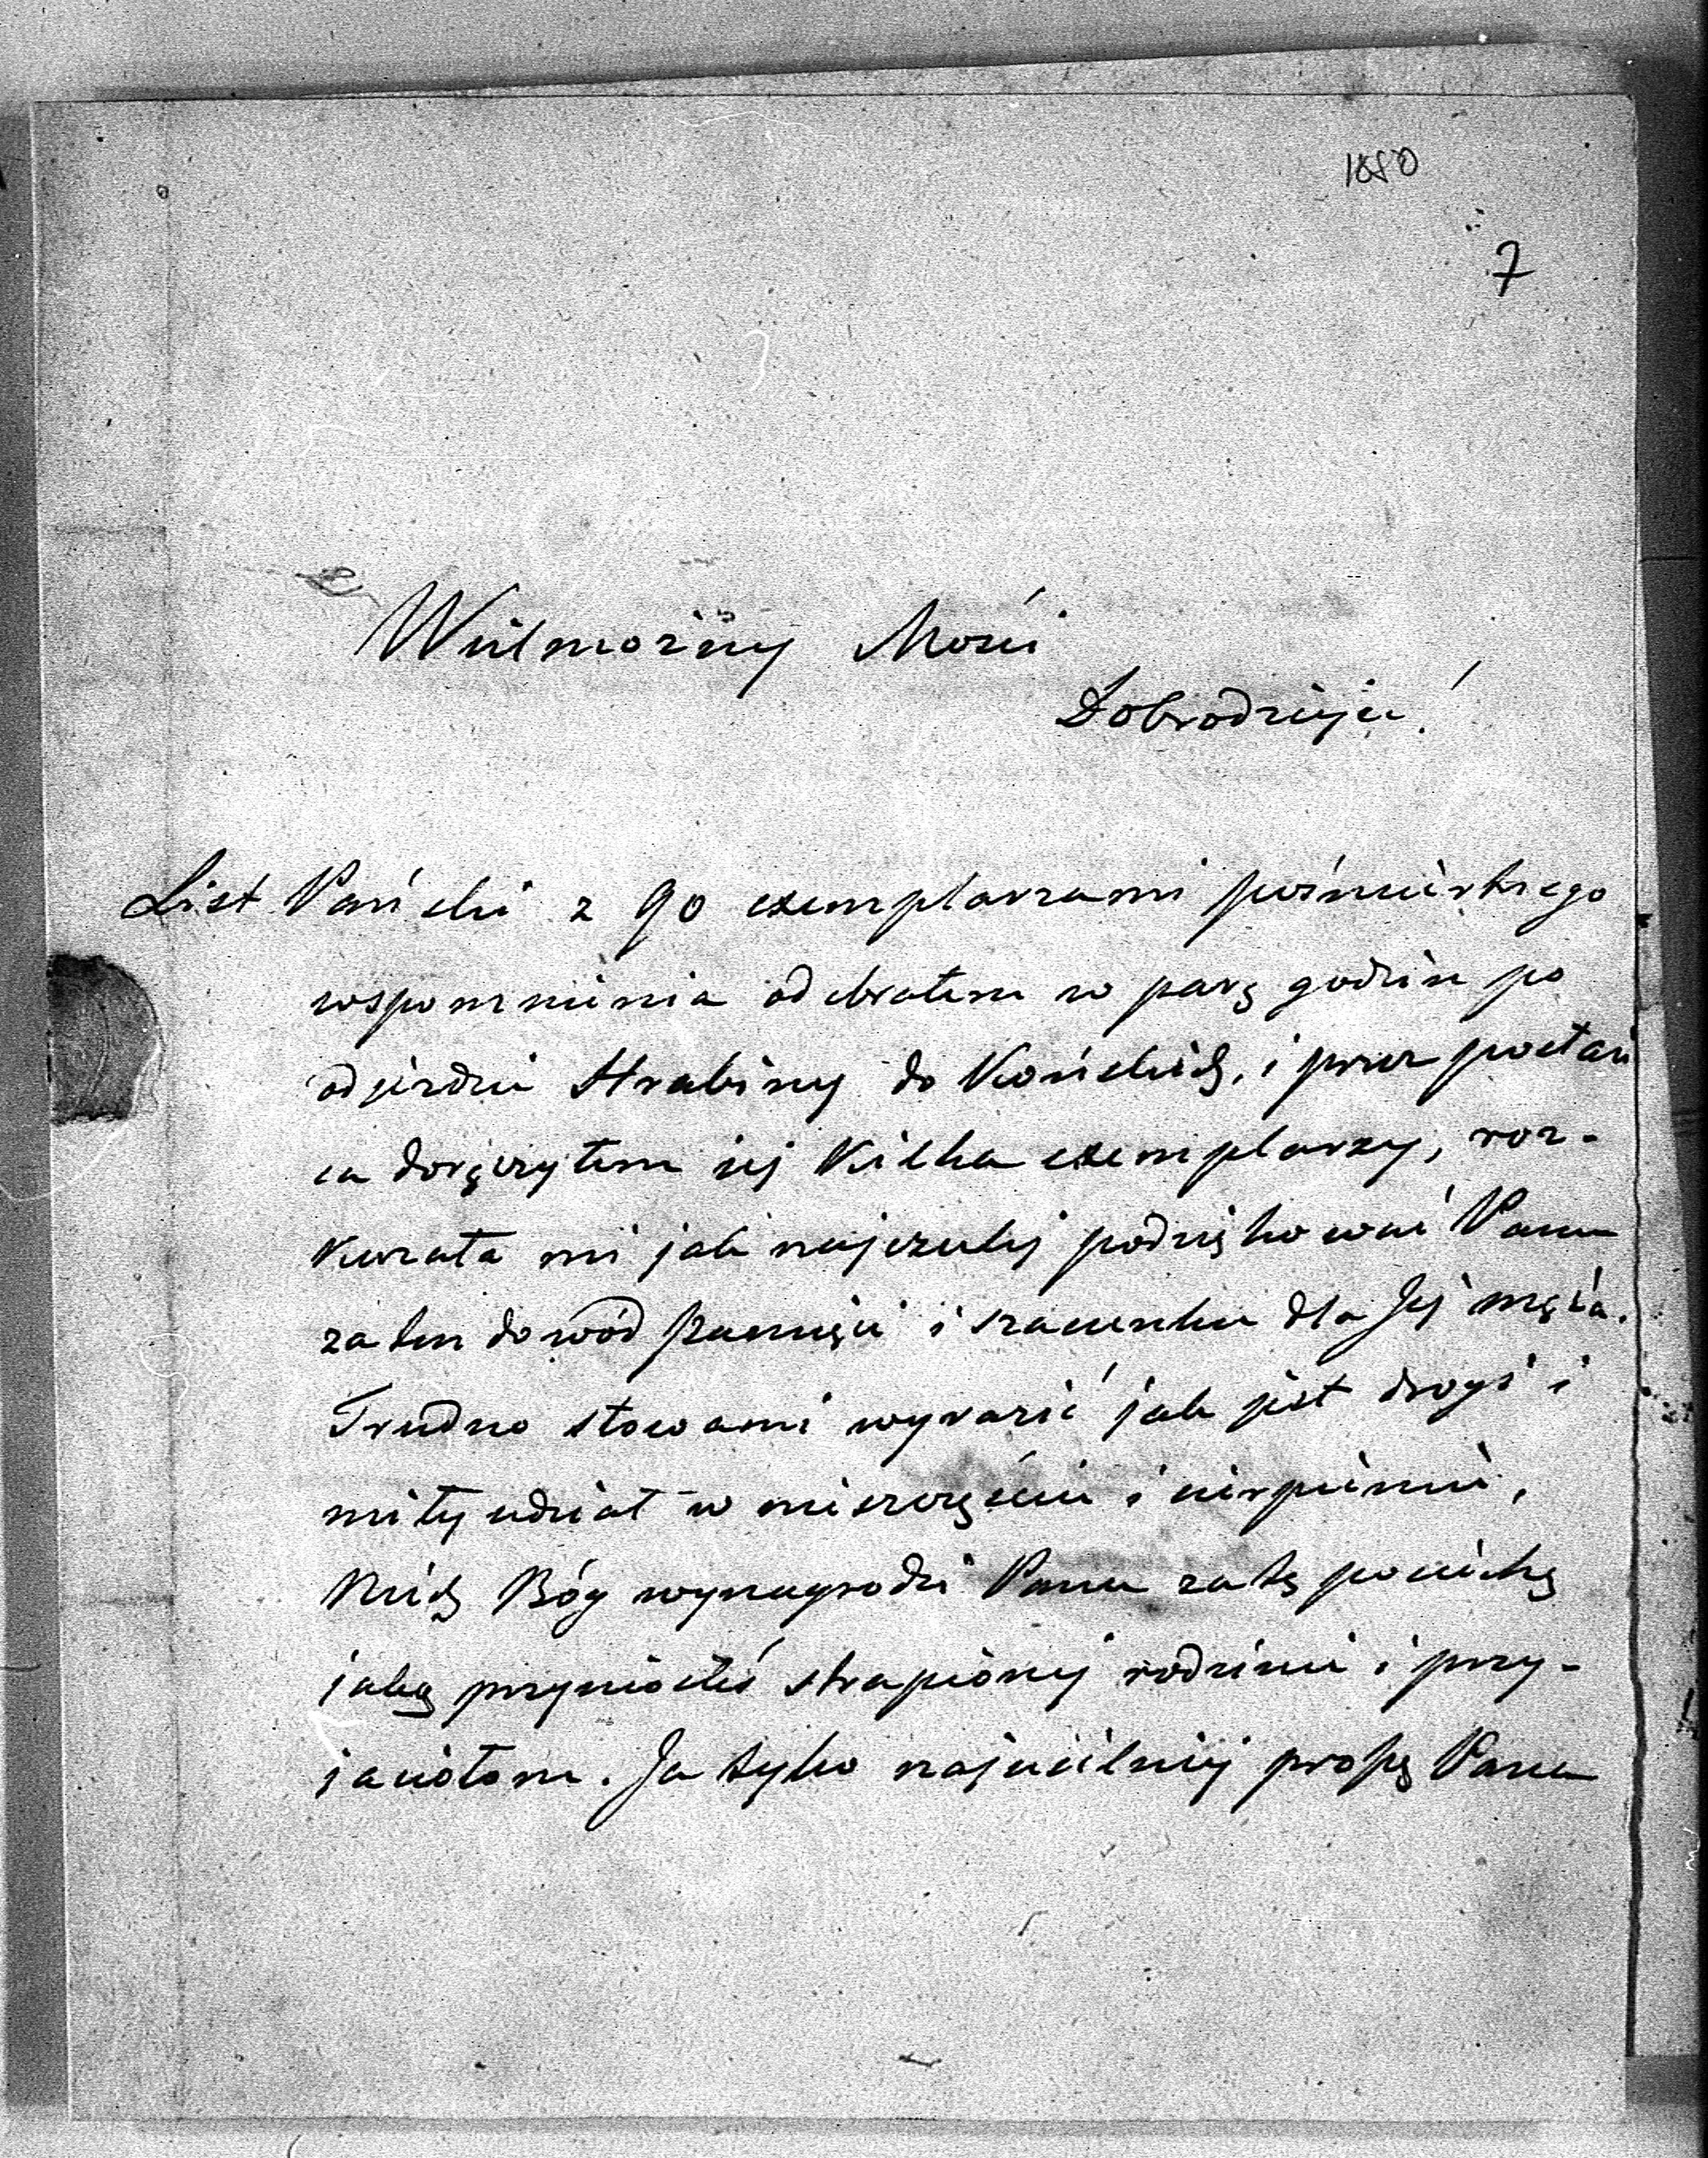 1880
7
Wielmożny Mości
Dobrodzieju!
List Pański z 90 exemplarzami pośmiertnego
wspomnienia odebrałem w parę godzin po
odjeździe Hrabiny do Końskich, i przez posłań
ca doręczyłem jej kilka exemplarzy, roz-
kazała mi jak najczulej podziękować Panu
za ten dowód pamięci i szacunku dla Jej męża.
Trudno słowami wyrazić jak jest drogi i
miły udział w nieszczęściu i cierpieniu,
Niech Bóg wynagrodzi Panu za tę pociechę
jaką przyniosłeś strapionej rodzinie i przy-
jaciołom. Ja tylko najusilniej proszę Pana